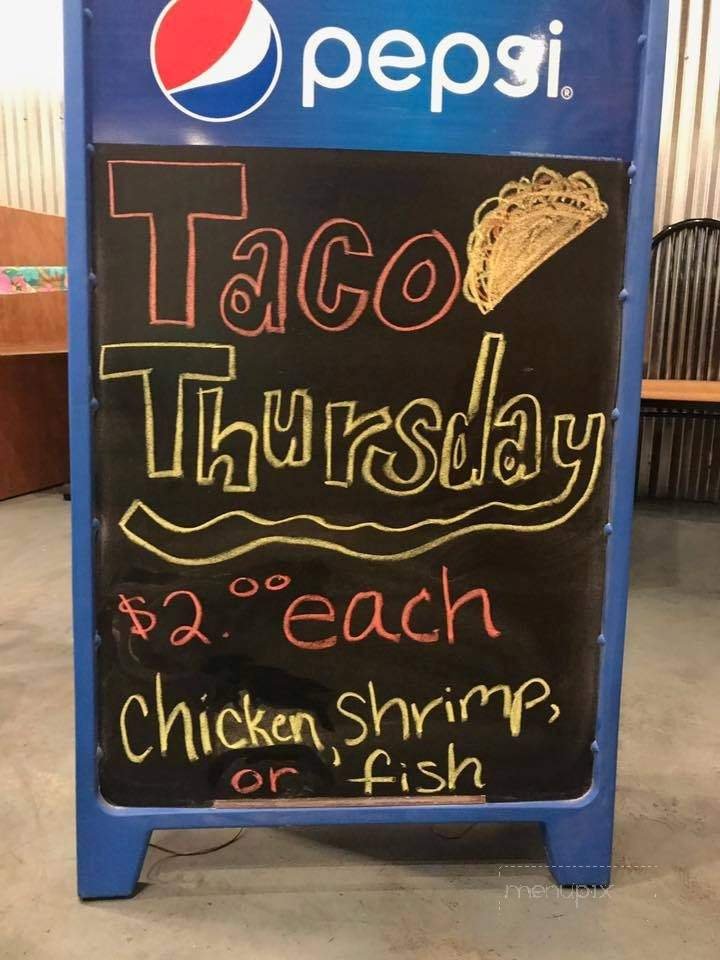 pepsi®
Taco
Thursday
$2.00 each
Chicken, Shrimp,
or fish
menupix